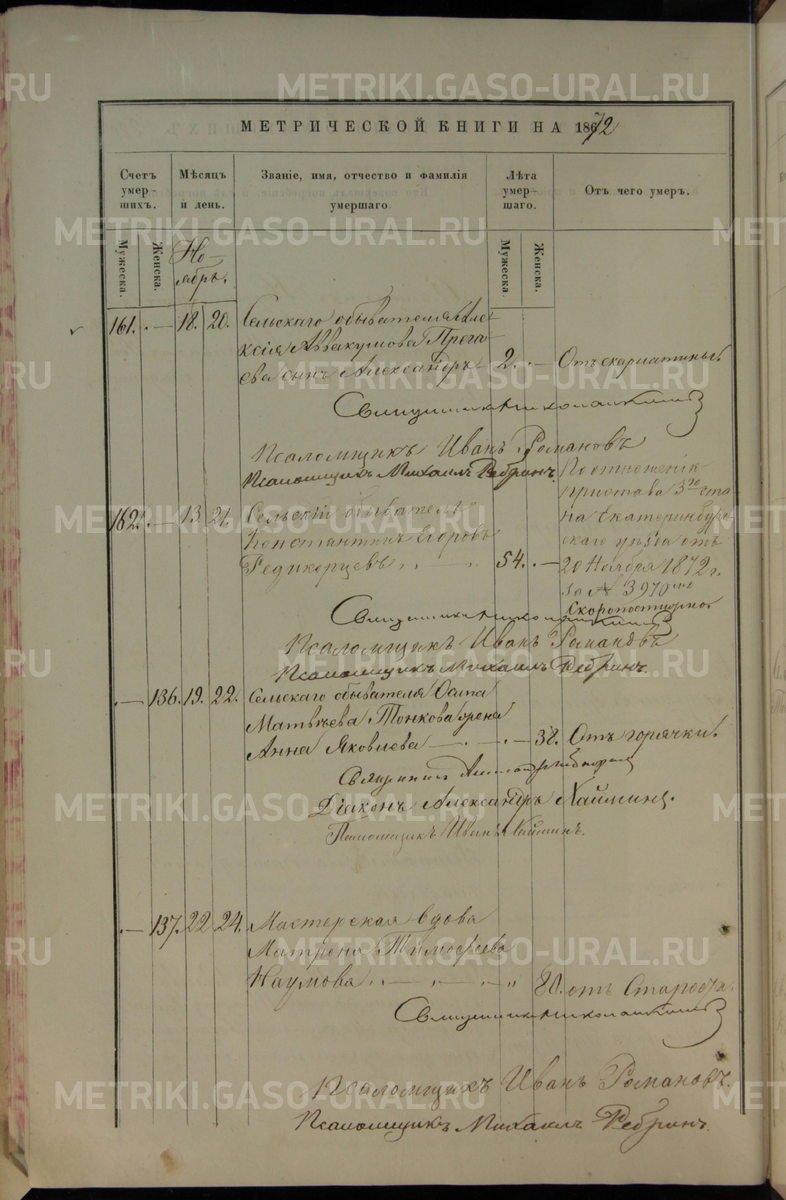 МЕТРИЧЕСКОЙ КНИГИ НА 1872
Счетъ умер-шихъ.
Мѣсяцъ и день.
Званіе, имя, отчество и фамилія умершаго
Лѣта умер-шаго.
Отъ чего умеръ.
Мужеска.
Женска.
Но-
ябрь.
Мужеска.
Женска.
161. — 18. 20. Сельскаго обывателя Алек-
ксія Аввакумова Прота-
ева сынъ Александръ 2. — Отъ скарлатины
Священникъ Николай
Псаломщикъ Иванъ Романовъ
Псаломщикъ Михаилъ Ребринъ.
По отношенію
пристава 3го ста
162. — 13. 21. Сельскій обыватель
на Екатеринбур-
Константинъ Егоровъ
скаго уѣзда отъ
Редикорцевъ 54. — 20 Ноября 1872 г.
за № 3970
Скоропостижно
Священникъ Николай
Псаломщикъ Иванъ Романовъ
Псаломщикъ Михаилъ Ребринъ.
— 136. 19. 22. Сельскаго обывателя Осипа
Матвѣева Тонкова жена
Анна Яковлева — 38. Отъ горячки.
Священникъ
Діаконъ Александръ Хайминъ.
Псаломщикъ Иванъ Хайминъ.
— 137. 22 24. Мастерская вдова
Матрона Тимофеева
Наумова — 80. отъ Старости.
Священникъ Николай
Псаломщикъ Иванъ Романовъ.
Псаломщикъ Михаилъ Ребринъ.
METRIKI.GASO-URAL.RU